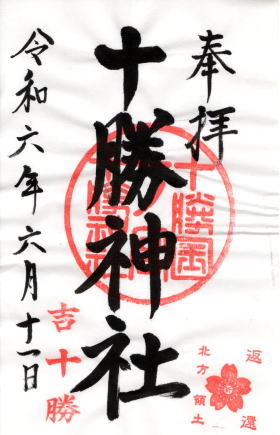 奉拝
十勝神社
令和六年六月十一日
吉十勝
返還
北方領土